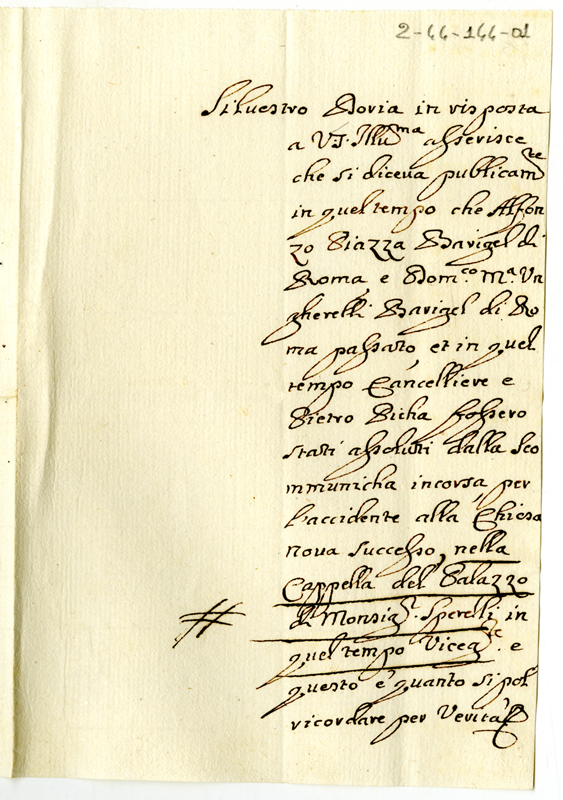 2-44-144-01
Siluestro Doria in risposta
a VS. Illu.ma asserisce
che si diceua publicam.te
in quel tempo che Alfon
zo Piazza Barigel di
Roma e Dom.co M.a Vn
gherelli Barigel di Ro
ma passato, et in quel
tempo Cancelliere e
Pietro Picha fossero
stati assoluti dalla Sco
mmunicha incorsa per
l'accidente alla Chiesa
noua successo, nella
Cappella del Palazzo
di Monsig.r Sperelli in
#
quel tempo Viceg.te e
questo è quanto si pol
ricordare per Verità